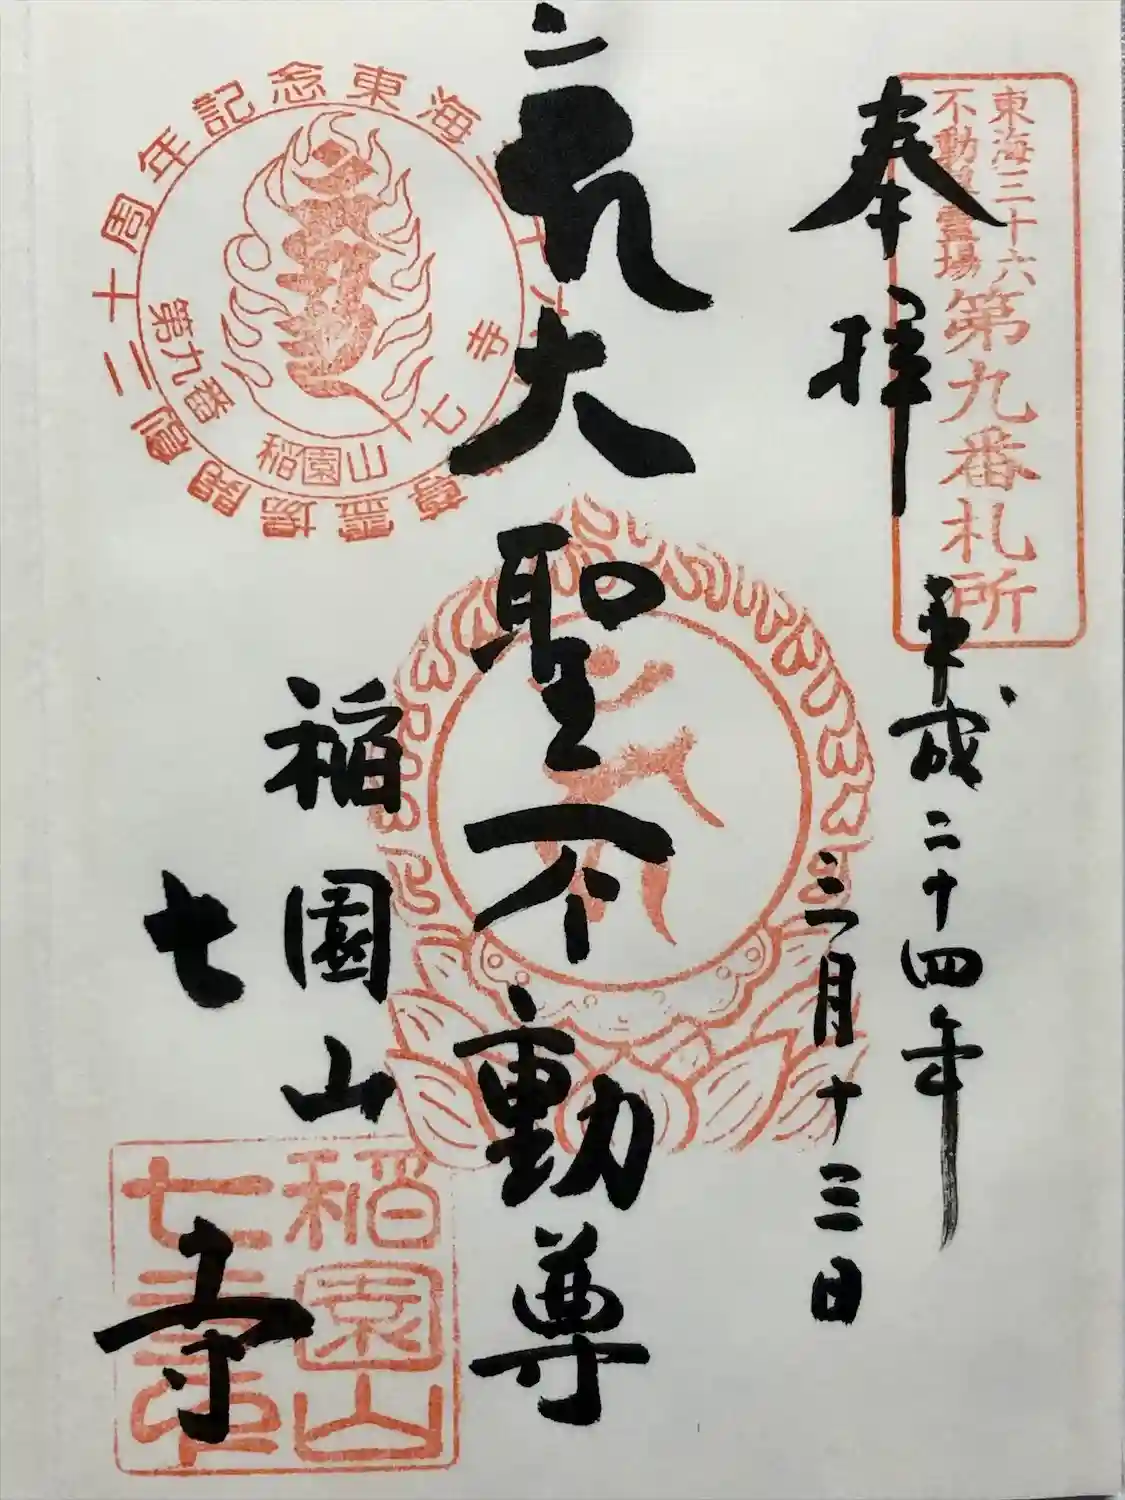 東海三十六
不動尊霊場
第九番札所
奉拝
平成二十四年
三月十三日
大聖不動尊
稲園山
七寺
稲園山
七寺
二十周年記念東海
尊霊場開創
第九番
稲園山
七寺